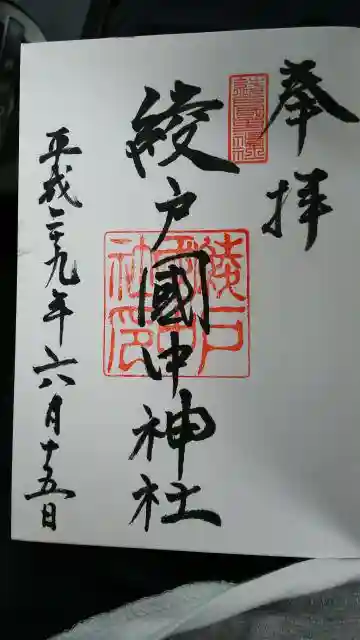 奉拝
綾戸國中神社
平成二十九年六月十五日
綾戸國中神社印